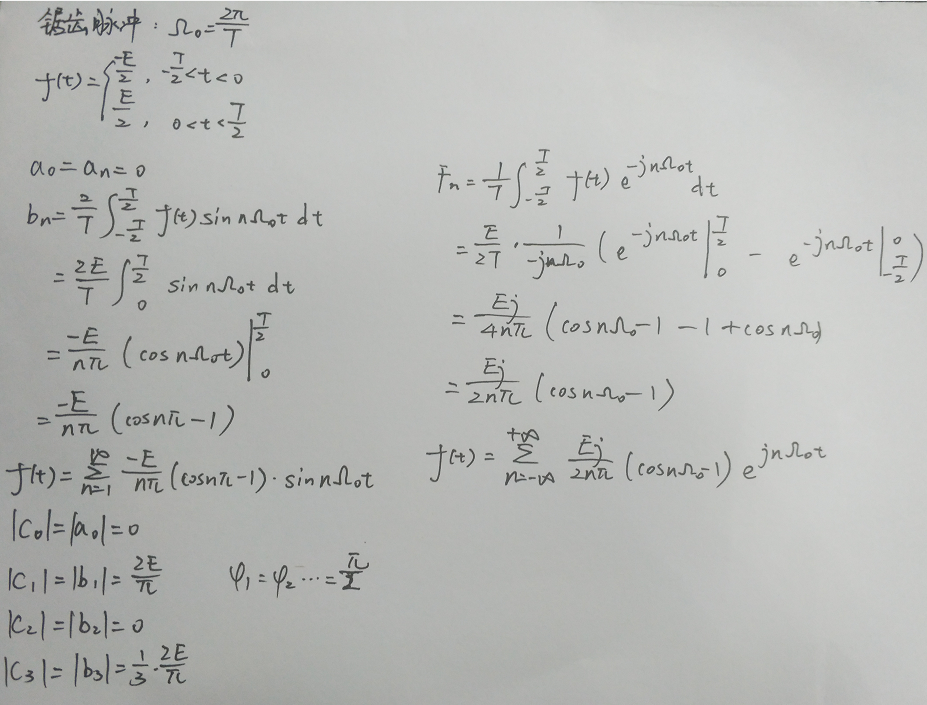 锯齿脉冲: Ω₀=2π/T
f(t)={ -E/2, -T/2<t<0
E/2, 0<t<T/2
a₀=aₙ=0
bₙ=2/T ∫_{-T/2}^{T/2} f(t) sin nΩ₀t dt
=2E/T ∫_0^{T/2} sin nΩ₀t dt
=-E/nπ (cos nΩ₀t)|_0^{T/2}
=-E/nπ (cosnπ-1)
f(t)=∑_{n=1}^{∞} -E/nπ (cosnπ-1)·sin nΩ₀t
|C₀|=|a₀|=0
|C₁|=|b₁|=2E/π φ₁=φ₂…=π/2
|C₂|=|b₂|=0
|C₃|=|b₃|=1/3·2E/π
Fₙ=1/T ∫_{-T/2}^{T/2} f(t) e^{-jnΩ₀t} dt
=E/2T · 1/-jnΩ₀ (e^{-jnΩ₀t}|_0^{T/2} - e^{-jnΩ₀t}|_{-T/2}^0)
=Ej/4nπ (cosnΩ₀-1-1+cosnΩ₀)
=Ej/2nπ (cosnΩ₀-1)
f(t)=∑_{n=-∞}^{+∞} Ej/2nπ (cosnΩ₀-1) e^{jnΩ₀t}